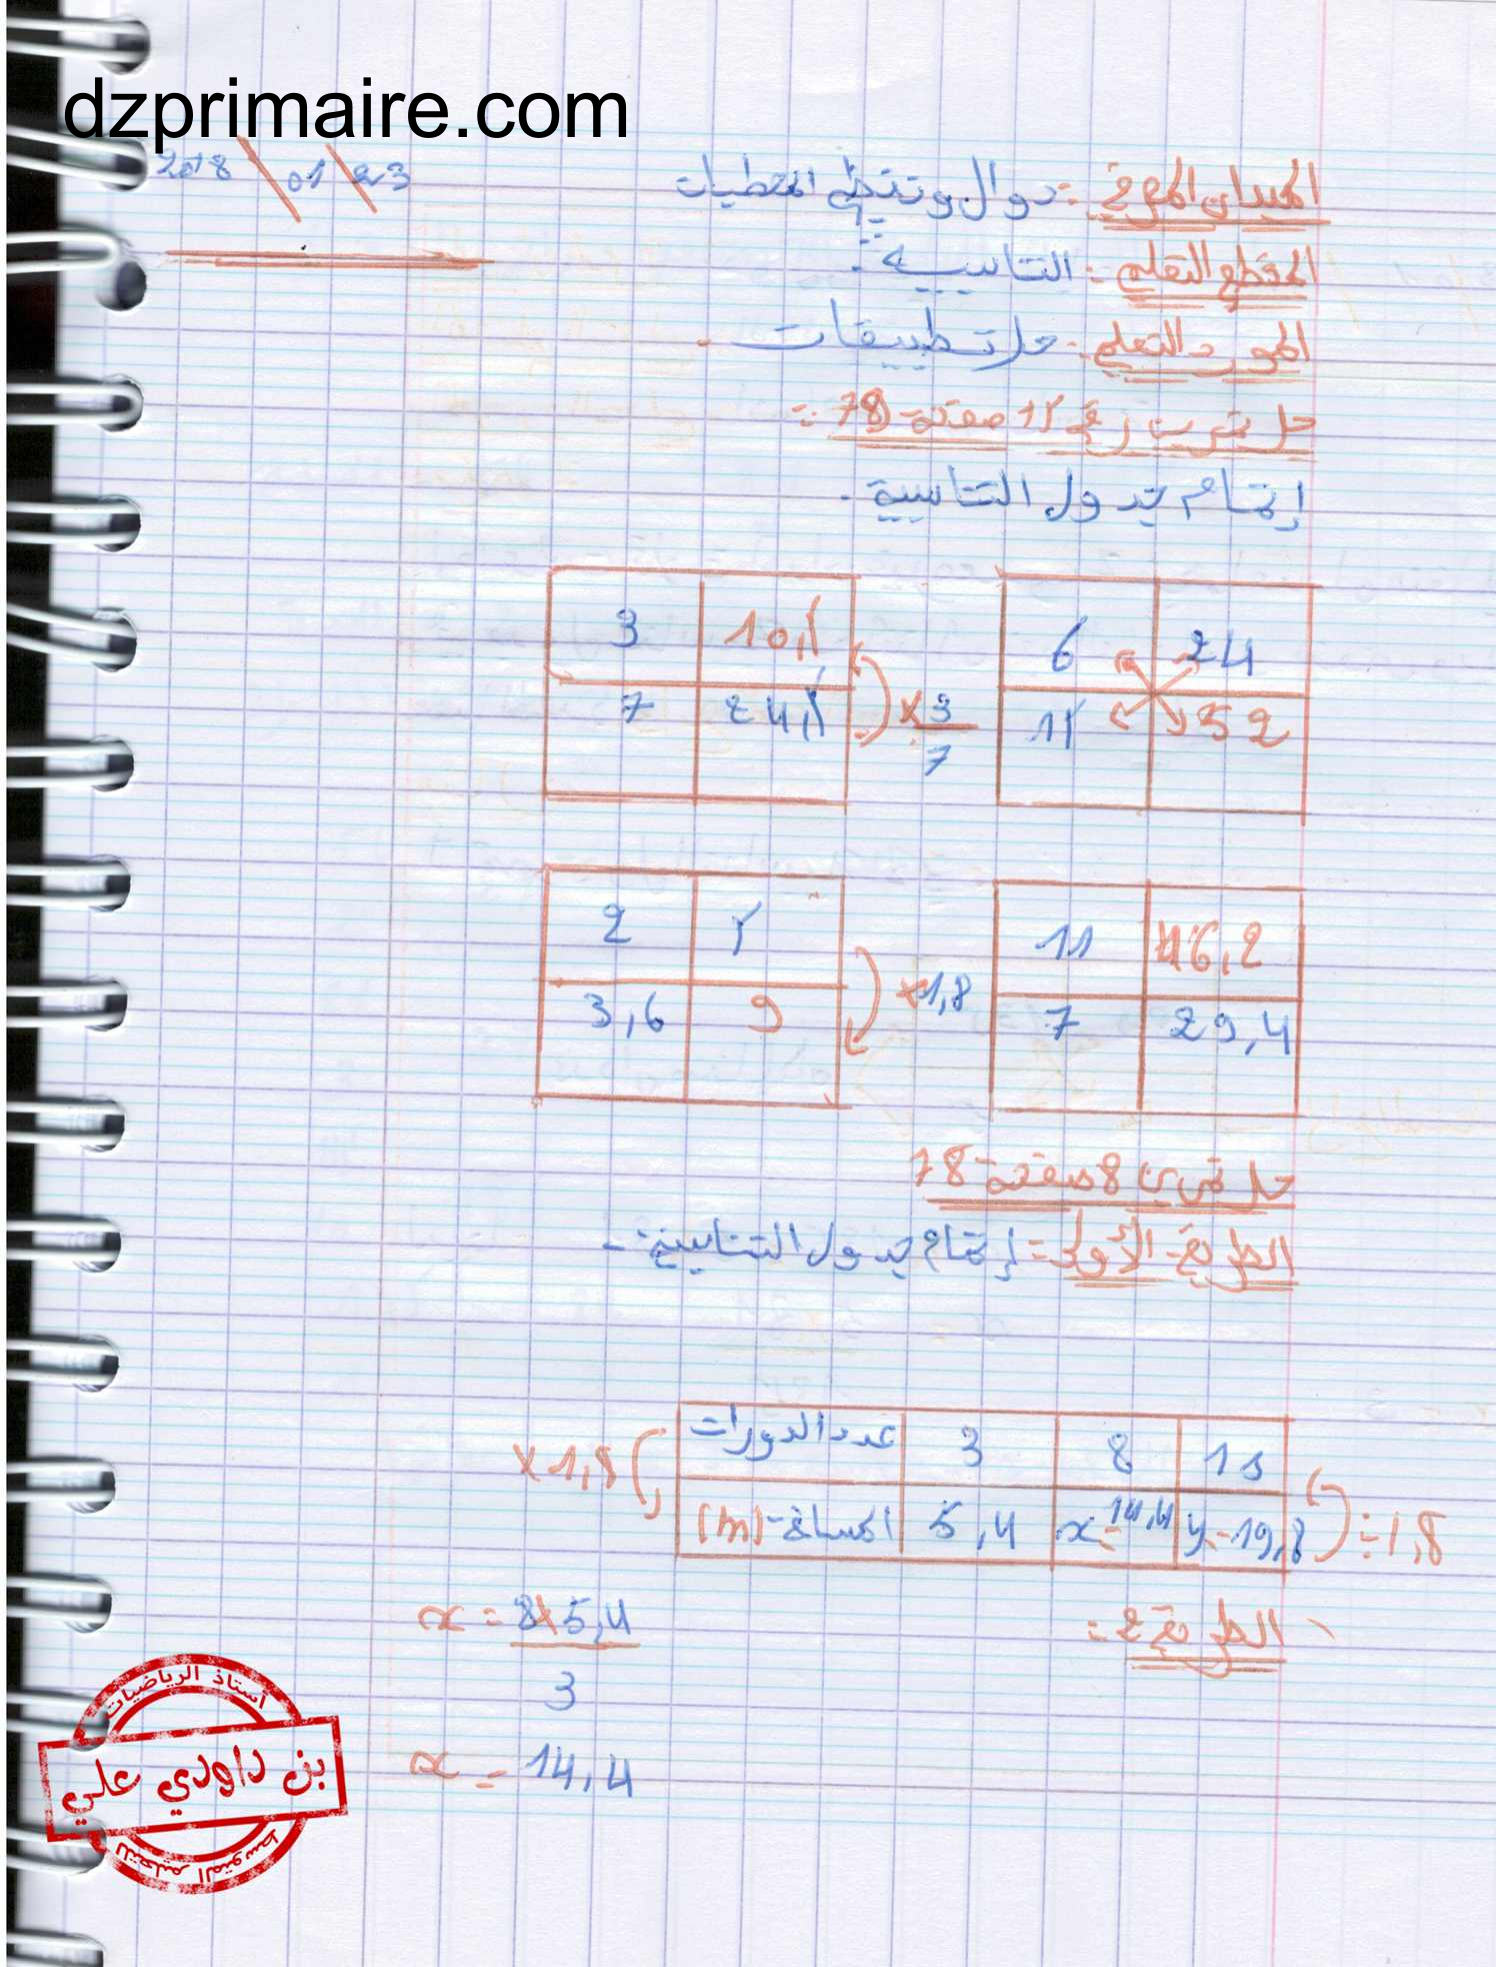 dzprimaire.com
2018 \ 01 \ 23
الميدان المعرفي :- دوال وتنظيم المعطيات
المقطع التعلمي :- التناسبية .
المورد التعلمي :- حل تطبيقات .
حل تمرين رقم 15 صفحة 78 :-
إتمام جدول التناسبية .
3 10,5
7 24,5
× 3/7
6 24
13 52
2 5
3,6 9
×1,8
11 46,2
7 29,4
حل تمرين 8 صفحة 78
الطريقة الأولى :- إتمام جدول التناسبية .
×1,8
عدد الدورات 3 8 11
المسافة (m) 5,4 x=14,4 y=19,8
÷1,8
الطريقة 2 :-
x = 8×5,4
3
x = 14,4
أستاذ الرياضيات
بن داودي علي
للتعليم المتوسط